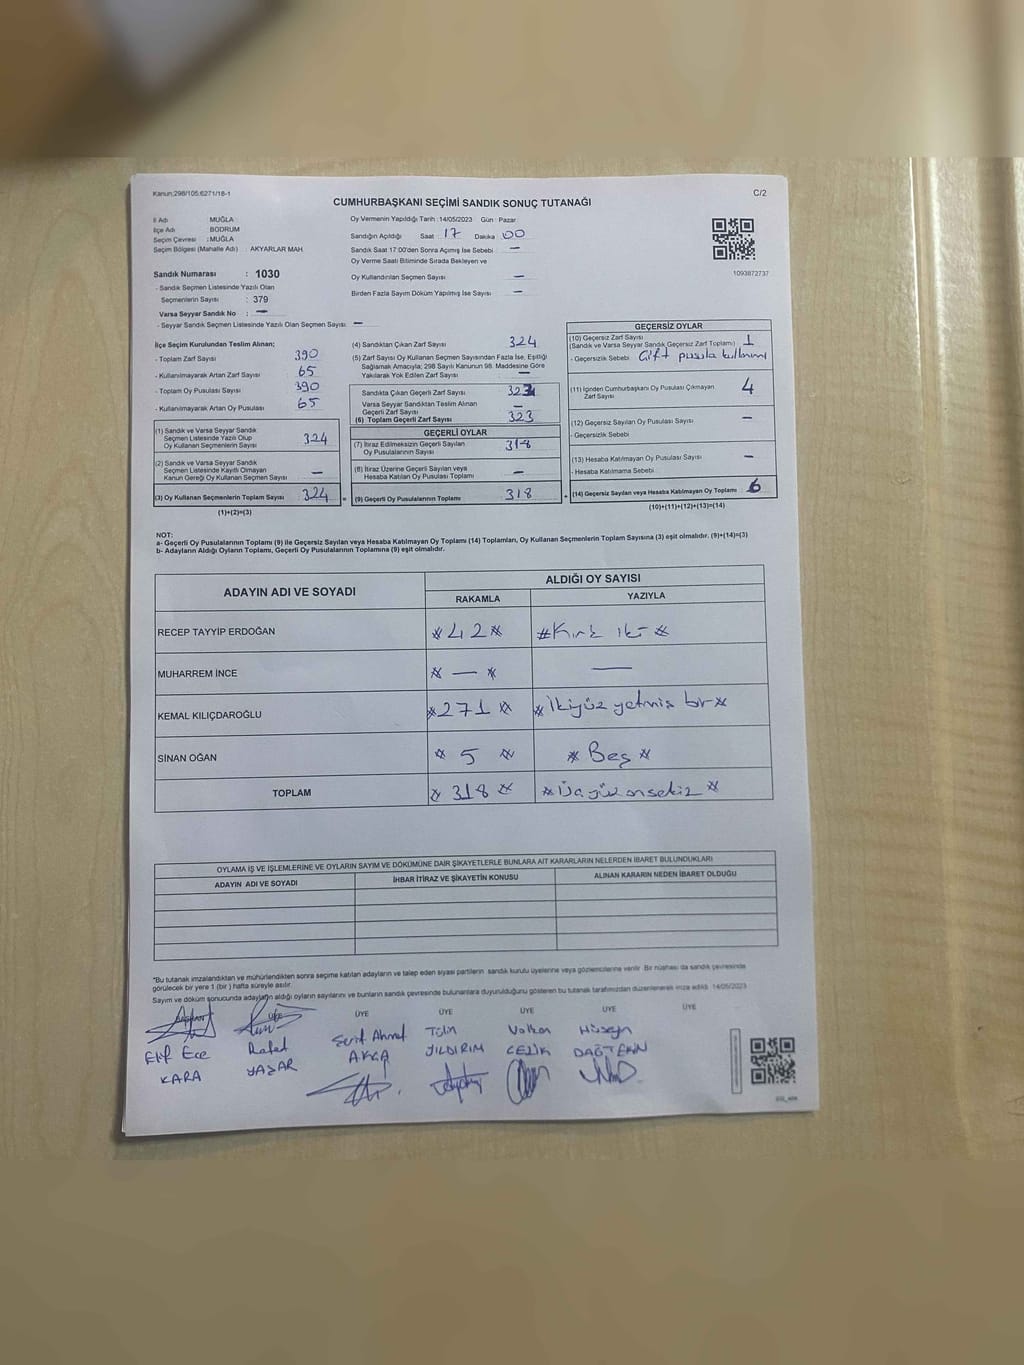 Kanun:298/105;6271/18-1
C/2
CUMHURBAŞKANI SEÇİMİ SANDIK SONUÇ TUTANAĞI
İl Adı MUĞLA
İlçe Adı BODRUM
Seçim Çevresi :MUĞLA
Seçim Bölgesi (Mahalle Adı) : AKYARLAR MAH.
Sandık Numarası : 1030
- Sandık Seçmen Listesinde Yazılı Olan
Seçmenlerin Sayısı : 379
Varsa Seyyar Sandık No : —
- Seyyar Sandık Seçmen Listesinde Yazılı Olan Seçmen Sayısı: —
Oy Vermenin Yapıldığı Tarih :14/05/2023 Gün : Pazar
Sandığın Açıldığı Saat : 17 Dakika 00
Sandık Saat 17:00'den Sonra Açılmış İse Sebebi —
Oy Verme Saati Bitiminde Sırada Bekleyen ve
Oy Kullandırılan Seçmen Sayısı —
Birden Fazla Sayım Döküm Yapılmış İse Sayısı —
1093872737
İlçe Seçim Kurulundan Teslim Alınan;
- Toplam Zarf Sayısı 390
- Kullanılmayarak Artan Zarf Sayısı 65
- Toplam Oy Pusulası 390
- Kullanılmayarak Artan Oy Pusulası 65
(1) Sandık ve Varsa Seyyar Sandık
Seçmen Listesinde Yazılı Olup
Oy Kullanan Seçmenlerin Sayısı 324
(2) Sandık ve Varsa Seyyar Sandık
Seçmen Listesinde Kayıtlı Olmayan
Kanun Gereği Oy Kullanan Seçmen Sayısı —
(3) Oy Kullanan Seçmenlerin Toplam Sayısı 324 =
(1)+(2)=(3)
(4) Sandıktan Çıkan Zarf Sayısı 324
(5) Zarf Sayısı Oy Kullanan Seçmen Sayısından Fazla İse, Eşitliği
Sağlamak Amacıyla; 298 Sayılı Kanunun 98. Maddesine Göre
Yakılarak Yok Edilen Zarf Sayısı —
Sandıkta Çıkan Geçerli Zarf Sayısı 323
Varsa Seyyar Sandıktan Teslim Alınan
Geçerli Zarf Sayısı —
(6) Toplam Geçerli Zarf Sayısı 323
GEÇERLİ OYLAR
(7) İtiraz Edilmeksizin Geçerli Sayılan
Oy Pusulalarının Sayısı 318
(8) İtiraz Üzerine Geçerli Sayılan veya
Hesaba Katılan Oy Pusulası Toplamı —
(9) Geçerli Oy Pusulalarının Toplamı 318 +
GEÇERSİZ OYLAR
(10) Geçersiz Zarf Sayısı
(Sandık ve Varsa Seyyar Sandık Geçersiz Zarf Toplamı) 1
- Geçersizlik Sebebi Çift pusula kullanımı
(11) İçinden Cumhurbaşkanı Oy Pusulası Çıkmayan
Zarf Sayısı 4
(12) Geçersiz Sayılan Oy Pusulası Sayısı —
- Geçersizlik Sebebi
(13) Hesaba Katılmayan Oy Pusulası Sayısı —
- Hesaba Katılmama Sebebi
(14) Geçersiz Sayılan veya Hesaba Katılmayan Oy Toplamı 6
(10)+(11)+(12)+(13)=(14)
NOT:
a- Geçerli Oy Pusulalarının Toplamı (9) ile Geçersiz Sayılan veya Hesaba Katılmayan Oy Toplamı (14) Toplamları, Oy Kullanan Seçmenlerin Toplam Sayısına (3) eşit olmalıdır. (9)+(14)=(3)
b- Adayların Aldığı Oyların Toplamı, Geçerli Oy Pusulalarının Toplamına (9) eşit olmalıdır.
ADAYIN ADI VE SOYADI ALDIĞI OY SAYISI
RAKAMLA YAZIYLA
RECEP TAYYİP ERDOĞAN *42* #Kırk iki*
MUHARREM İNCE * — * —
KEMAL KILIÇDAROĞLU *271* *İkiyüz yetmiş bir*
SİNAN OĞAN * 5 * * Beş *
TOPLAM * 318 * *Üçyüz onsekiz*
OYLAMA İŞ VE İŞLEMLERİNE VE OYLARIN SAYIM VE DÖKÜMÜNE DAİR ŞİKAYETLERLE BUNLARA AİT KARARLARIN NELERDEN İBARET BULUNDUKLARI
ADAYIN ADI VE SOYADI İHBAR İTİRAZ VE ŞİKAYETİN KONUSU ALINAN KARARIN NEDEN İBARET OLDUĞU
*Bu tutanak imzalandıktan ve mühürlendikten sonra seçime katılan adayların ve talep eden siyasi partilerin sandık kurulu üyelerine veya gözlemcilerine verilir. Bir nüshası da sandık çevresinde
görülecek bir yere 1 (bir ) hafta süreyle asılır.
Sayım ve döküm sonucunda adayların aldığı oyların sayılarını ve bunların sandık çevresinde bulunanlara duyurulduğunu gösteren bu tutanak tarafımızdan düzenlenerek imza edildi. 14/05/2023
BAŞKAN ÜYE ÜYE ÜYE ÜYE ÜYE ÜYE
Elif Ece Rafet Serif Ahmet Tülin Volkan Hüseyin
KARA YAŞAR AKÇA YILDIRIM ÇELİK DAĞTEKİN